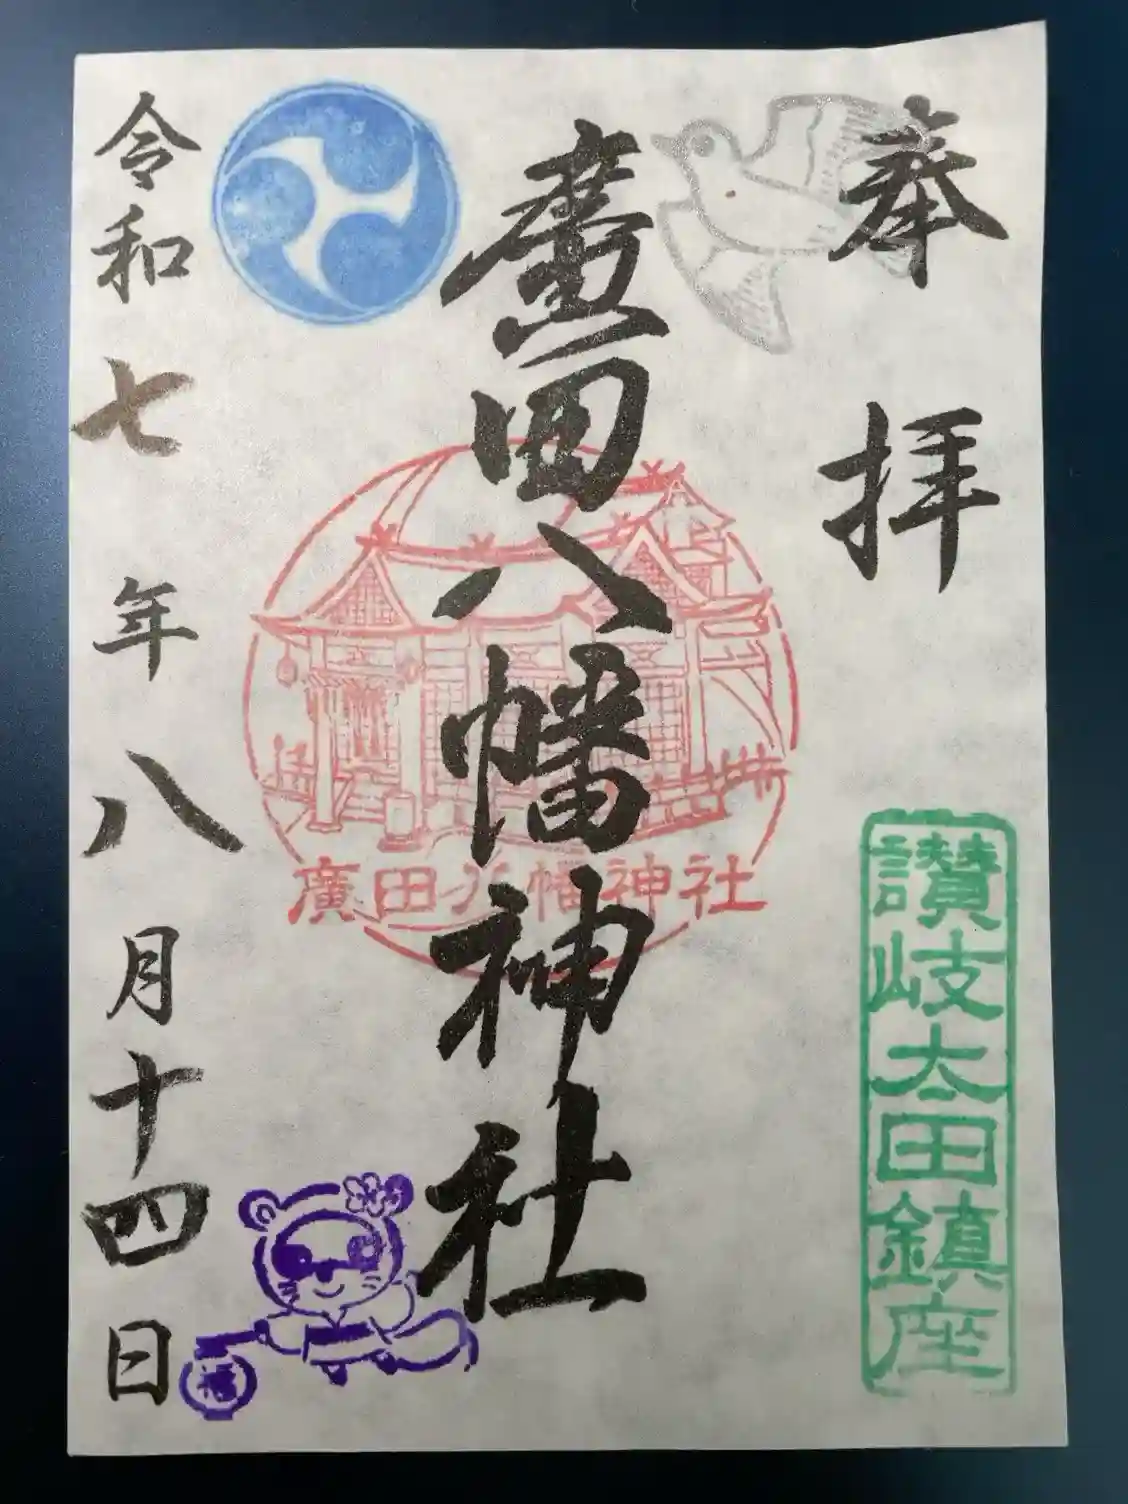 奉拝
讃岐太田鎮座
廣田八幡神社
廣田八幡神社
令和七年八月十四日
福